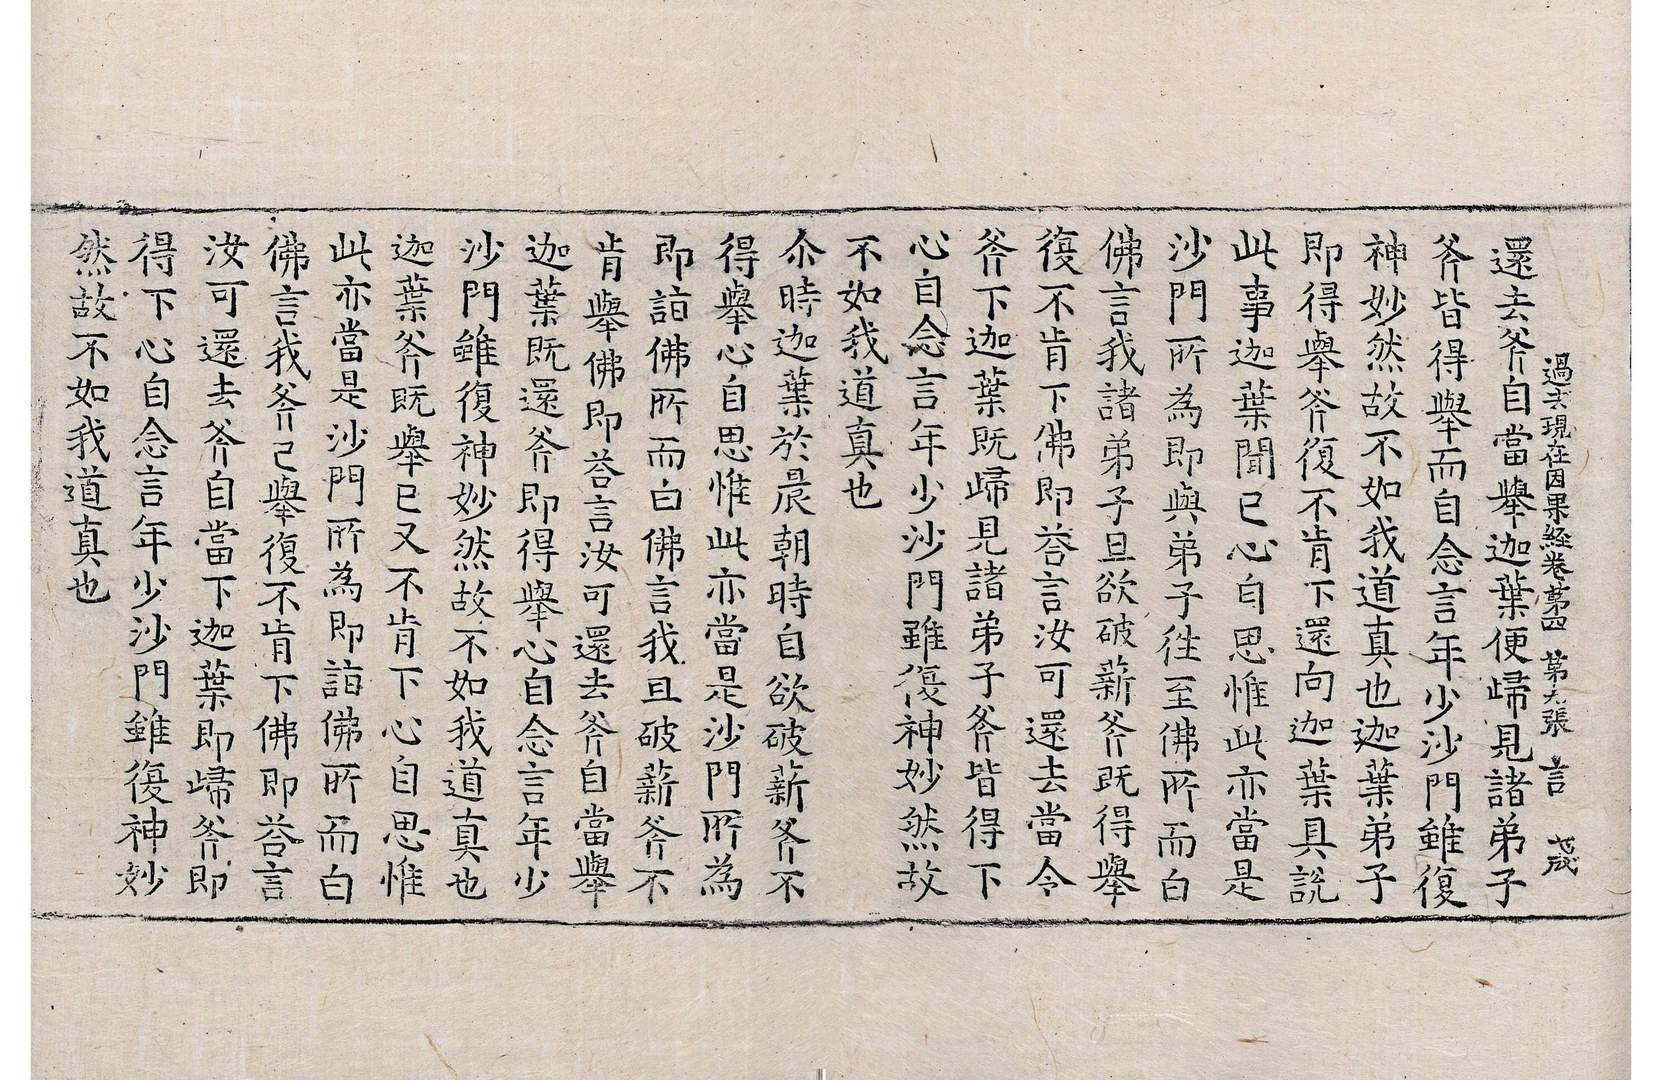 過去現在因果經卷第四 第九張 言 茂
還去斧自當舉迦葉便歸見諸弟子
斧皆得舉而自念言年少沙門雖復
神妙然故不如我道真也迦葉弟子
即得舉斧復不肯下還向迦葉具說
此事迦葉聞已心自思惟此亦當是
沙門所為即與弟子往至佛所而白
佛言我諸弟子旦欲破薪斧既得舉
復不肯下佛即荅言汝可還去當令
斧下迦葉既歸見諸弟子斧皆得下
心自念言年少沙門雖復神妙然故
不如我道真也
尒時迦葉於晨朝時自欲破薪斧不
得舉心自思惟此亦當是沙門所為
即詣佛所而白佛言我旦破薪斧不
肯舉佛即荅言汝可還去斧自當舉
迦葉既還斧即得舉心自念言年少
沙門雖復神妙然故不如我道真也
迦葉斧既舉已又不肯下心自思惟
此亦當是沙門所為即詣佛所而白
佛言我斧已舉復不肯下佛即荅言
汝可還去斧自當下迦葉即歸斧即
得下心自念言年少沙門雖復神妙
然故不如我道真也